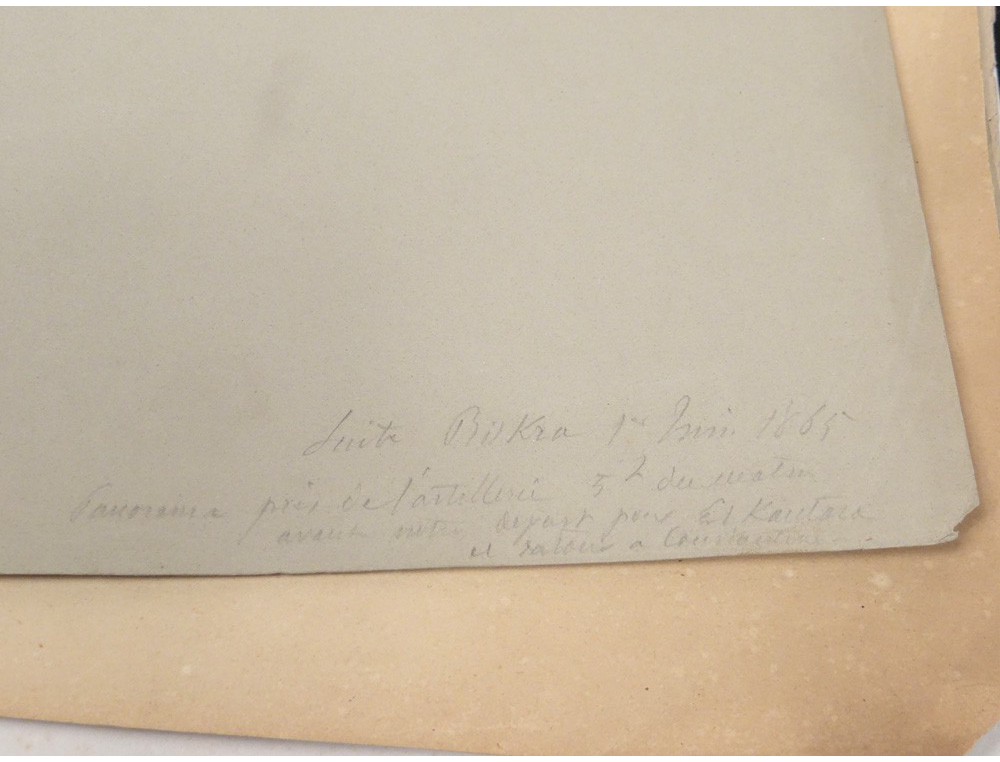 Suite Biskra 1er Juin 1865
Panorama pris de l'artillerie 5h du matin
avant notre depart pour El Kantara
et retour a Constantine